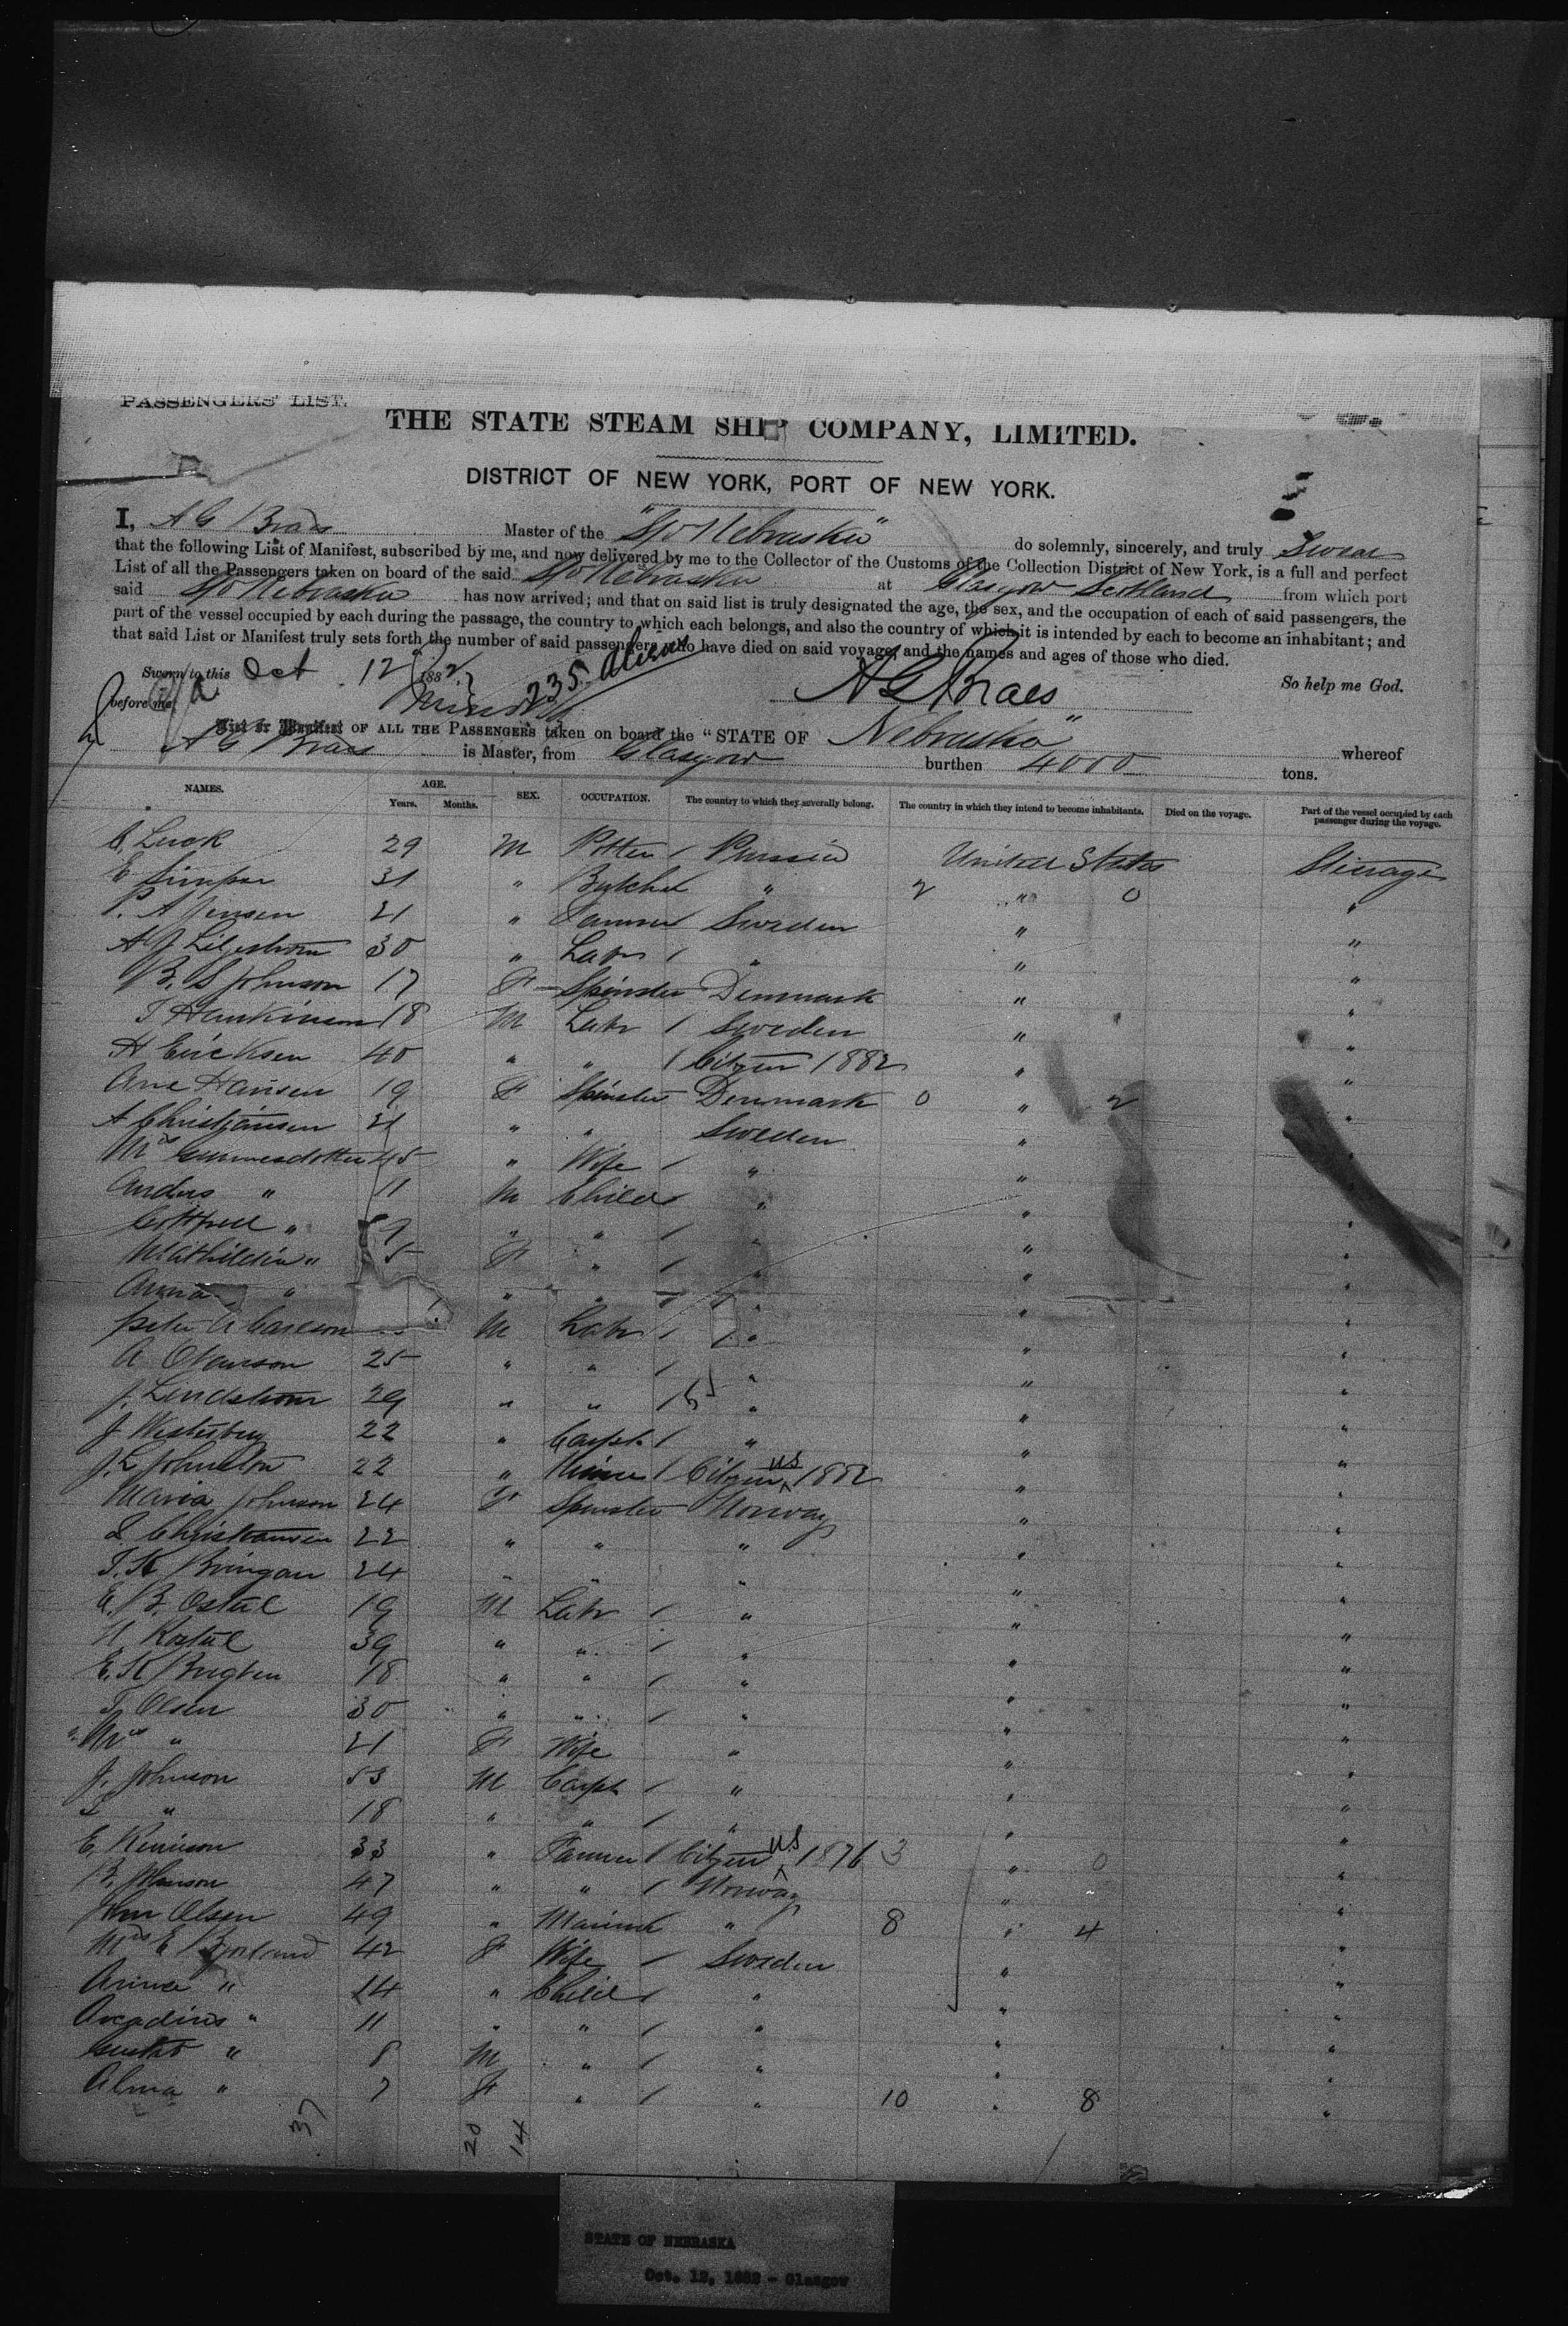 PASSENGERS' LIST.
THE STATE STEAM SHIP COMPANY, LIMITED.
DISTRICT OF NEW YORK, PORT OF NEW YORK.
I, A G Braes Master of the "S/o Nebraska" do solemnly, sincerely, and truly Swear
that the following List of Manifest, subscribed by me, and now delivered by me to the Collector of the Customs of the Collection District of New York, is a full and perfect
List of all the Passengers taken on board of the said S/o Nebraska at Glasgow Scotland from which port
said S/o Nebraska has now arrived; and that on said list is truly designated the age, the sex, and the occupation of each of said passengers, the
part of the vessel occupied by each during the passage, the country to which each belongs, and also the country of which it is intended by each to become an inhabitant; and
that said List or Manifest truly sets forth the number of said passengers who have died on said voyage, and the names and ages of those who died.
Sworn to this Oct 12 1882 235 Aliens So help me God.
before me A G Braes
List or Manifest OF ALL THE PASSENGERS taken on board the "STATE OF Nebraska" whereof
A G Braes is Master, from Glasgow burthen 4000 tons.
NAMES. AGE. Years. Months. SEX. OCCUPATION. The country to which they severally belong. The country in which they intend to become inhabitants. Died on the voyage. Part of the vessel occupied by each passenger during the voyage.
C. Luck 29 M Potter / Prussia United States Steerage
E 31 " Butcher " 2 " 0 "
P. A Jensen 21 " Farmer Sweden " "
A J Liljestrom 30 " Labr / " " "
B. S Johnson 17 F Spinster Denmark " "
T Hankinson 18 M Labr / Sweden " "
H Ericksen 40 " " / Citizen 1882 " "
Ane Hansen 19 F Spinster Denmark 0 " 2 "
A Christjansen 21 " " Sweden " "
Mrs Gunnesdotter 45 " Wife / " " "
Anders " 11 M Child / " " "
" 9 " " / " " "
Mathildia " 5 F " / " " "
Anna " " " " " "
Peter A Carlson M Labr / " " "
A Olauson 25 " " / " " "
J. Lindstrom 29 " " / " " "
J Westerberg 22 " Carpt. / " " "
J. L Johnston 22 " Miner / Citizen US 1882 " "
Maria Johnson 24 F Spinster Norway " "
L Christiansen 22 " " " " "
T. K Bringau 24 " " " " "
E. B. Ostul 19 M Labr / " " "
N Rostul 39 " " / " " "
E. K Brugten 18 " " / " " "
T. Olsen 30 " " / " " "
" Mrs " 21 F Wife " " "
J. Johnson 53 M Carpt / " " "
L " 18 " " / " " "
E. 33 " Farmer / Citizen US 1876 3 " 0 "
B. Johnson 47 " " / Norway " "
John Olsen 49 " " 8 " 4 "
Mrs E 42 F Wife / Sweden " "
Anna " 14 " Child / " " "
Arcadius " 11 " " / " " "
Gustav " 8 M " / " " "
Alma " 7 F " / " 10 " 8 "
37 20 14
STATE OF NEBRASKA
Oct. 12, 1882 - Glasgow